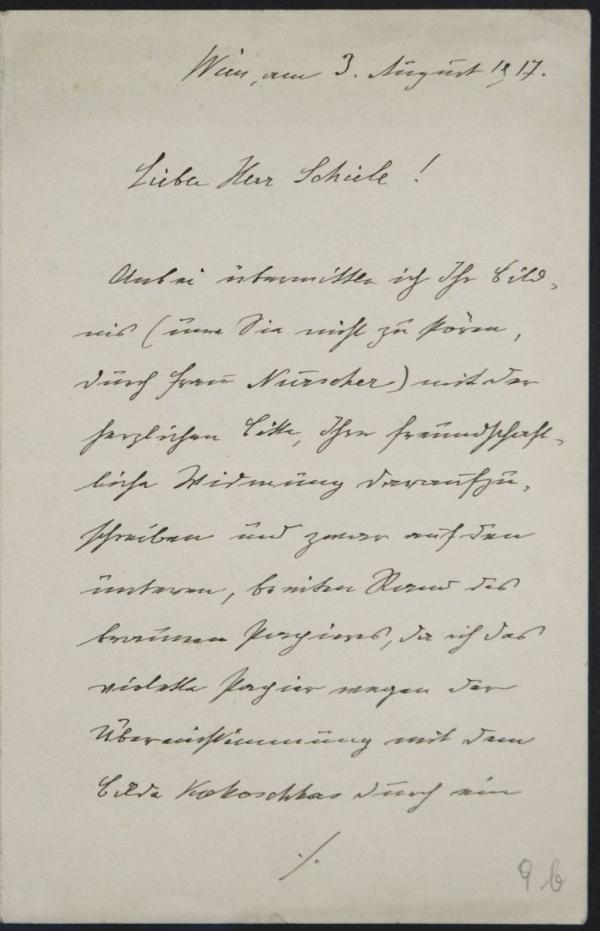 Wien, am 3. August 1917.
Lieber Herr Schiele!
Anbei übermittle ich Ihr Bild-
nis (um Sie nicht zu stören,
durch Frau Nurscher) mit der
herzlichen Bitte, Ihre freundschaft-
liche Widmung daraufzu-
schreiben und zwar auf den
unteren, breiten Rand des
braunen Papieres, da ich das
violette Papier wegen der
Übereinstimmung mit dem
Bilde Kokoschkas durch ein
./.
9 b